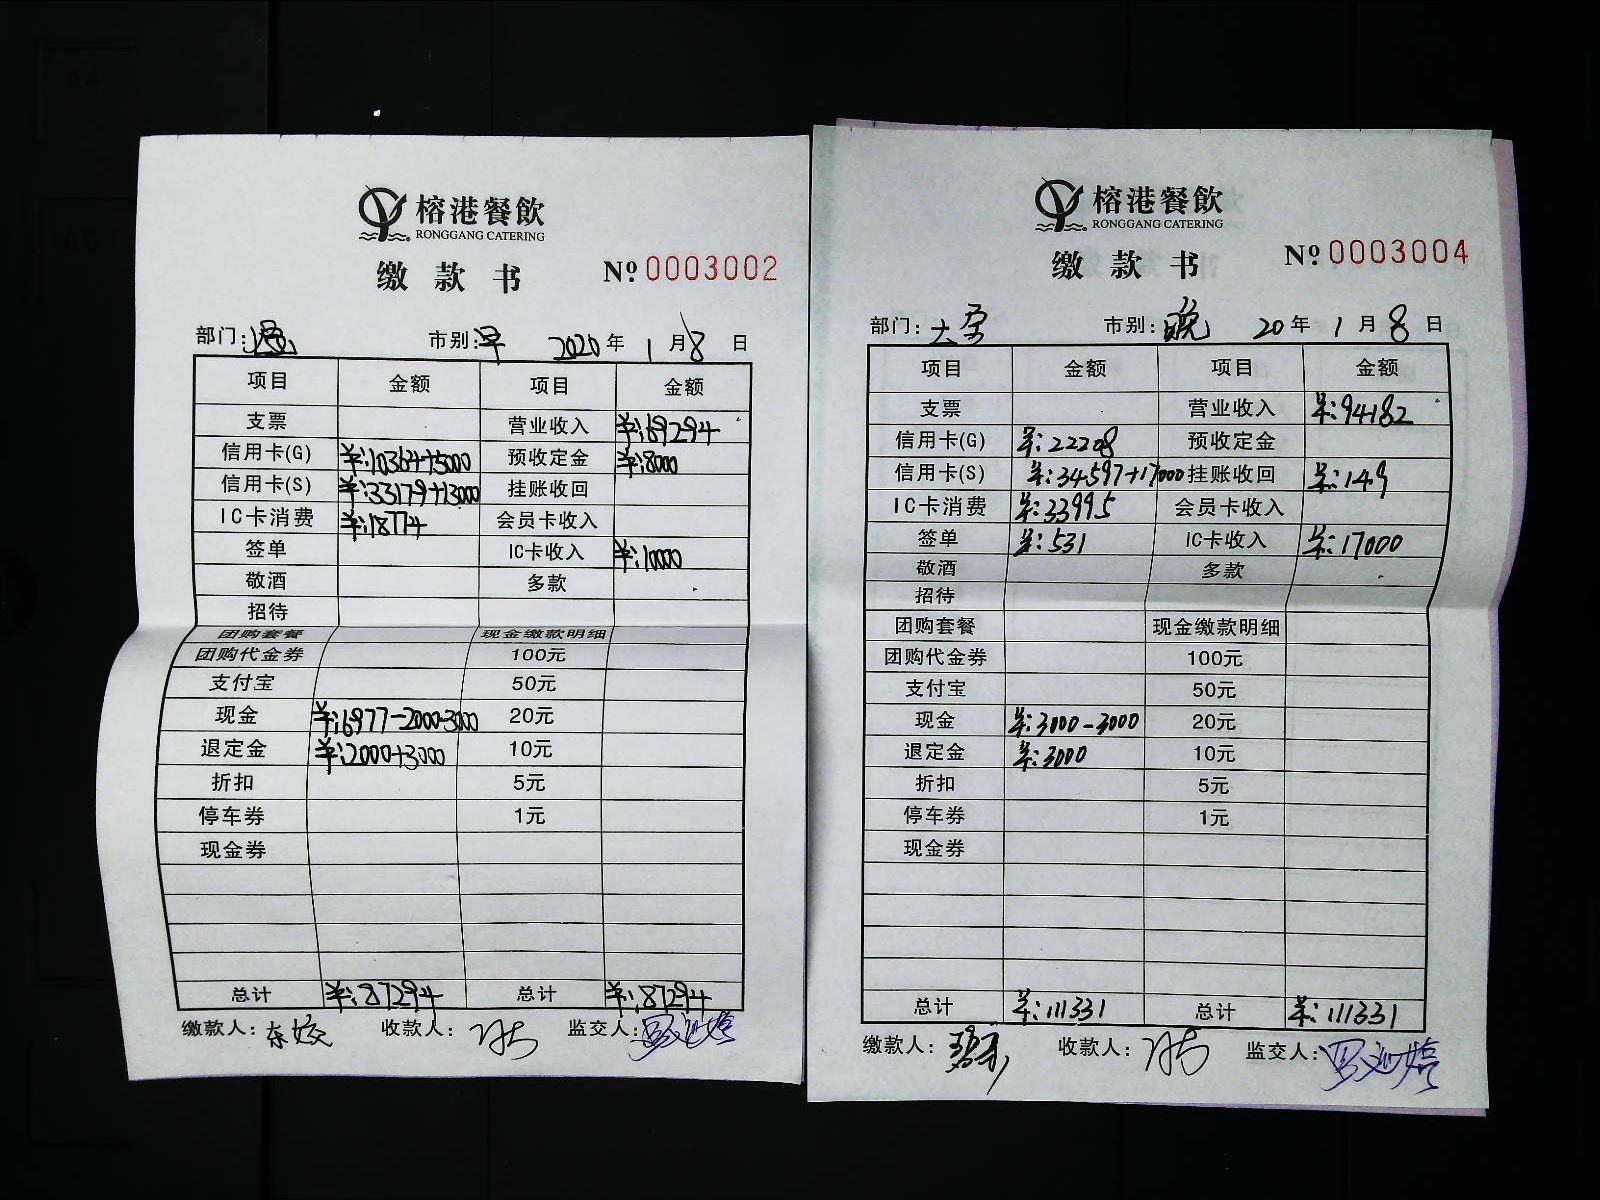 榕港餐飲
RONGGANG CATERING
缴款书 № 0003002
部门: 市别:早 2020年1月8日
项目 金额 项目 金额
支票 营业收入 ¥:69294
信用卡(G) ¥:10364+5000 预收定金 ¥:8000
信用卡(S) ¥:33179+13000 挂账收回
IC卡消费 ¥:18774 会员卡收入
签单 IC卡收入 ¥:10000
敬酒 多款
招待
团购套餐 现金缴款明细
团购代金券 100元
支付宝 50元
现金 ¥:6977-2000-3000 20元
退定金 ¥:2000+3000 10元
折扣 5元
停车券 1元
现金券
总计 ¥:87294 总计 ¥:87294
缴款人: 收款人: 监交人:
榕港餐飲
RONGGANG CATERING
缴款书 № 0003004
部门: 市别:晚 20年1月8日
项目 金额 项目 金额
支票 营业收入 ¥:94182
信用卡(G) ¥:22208 预收定金
信用卡(S) ¥:34597+17000 挂账收回 ¥:149
IC卡消费 ¥:33995 会员卡收入
签单 ¥:531 IC卡收入 ¥:17000
敬酒 多款
招待
团购套餐 现金缴款明细
团购代金券 100元
支付宝 50元
现金 ¥:3000-3000 20元
退定金 ¥:3000 10元
折扣 5元
停车券 1元
现金券
总计 ¥:111331 总计 ¥:111331
缴款人: 收款人: 监交人: